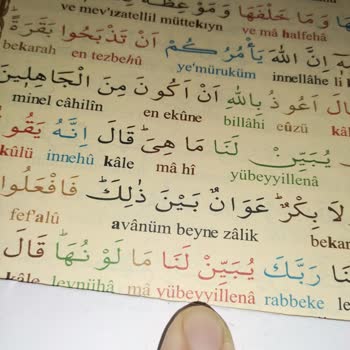 وَمَا خَلْفَهَا
ve mev'ızatellil müttekıyn ve mâ halfehâ
اِنَّ اللّٰهَ يَأْمُرُكُمْ اَنْ تَذْبَحُوا بَقَرَةً
bekarah en tezbehû ye'mürüküm innellâhe
اَعُوذُ بِاللّٰهِ اَنْ اَكُونَ مِنَ الْجَاهِلِينَ
minel câhilîn en ekûne billâhi eûzü
يُبَيِّنْ لَنَا مَا هِيَ قَالَ اِنَّهُ
kûlü innehû kâle mâ hî yübeyyillenâ
لَا بِكْرٌ عَوَانٌ بَيْنَ ذٰلِكَ فَافْعَلُوا
fef'alû avânüm beyne zâlik
رَبَّكَ يُبَيِّنْ لَنَا مَا لَوْنُهَا قَالَ
kâle levnühâ mâ yübeyyillenâ rabbeke